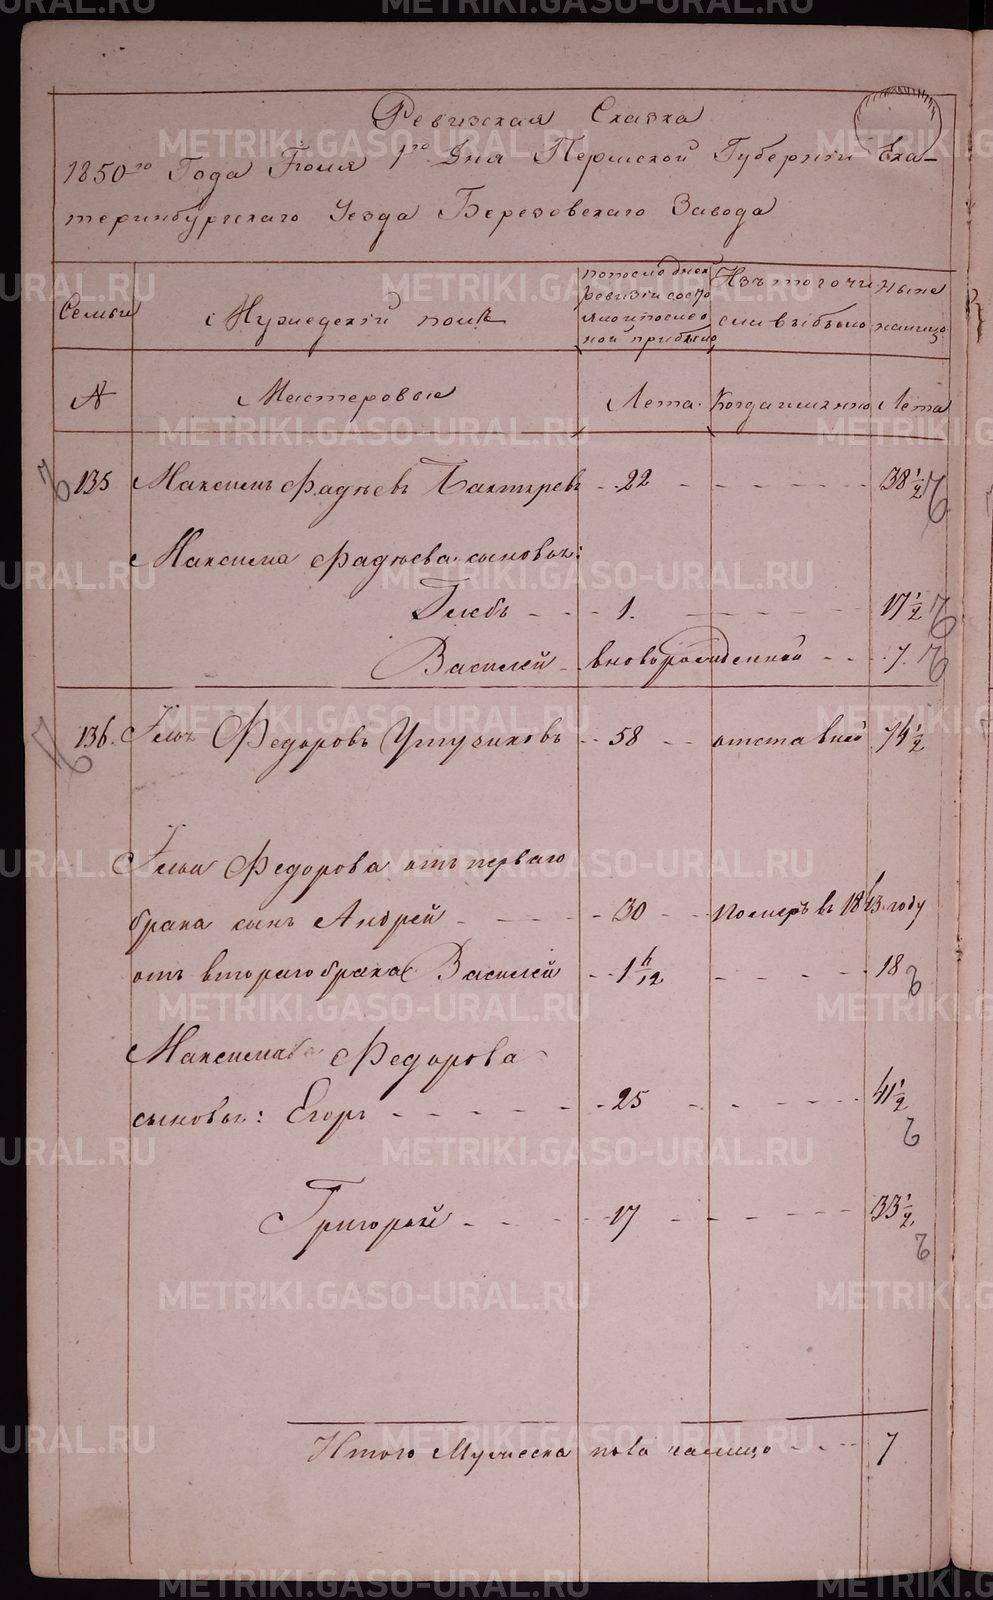 Ревизская Сказка
1850го Года Iюля 1го Дня Пермской Губернiи Ека-
теринбургскаго Уезда Березовскаго Завода
Семьи
Мужескiй полъ
по последней
ревизiи состо
яло и после о
ной прибыло
Изъ того чи
сла выбыло
ныне
налицо
№
Мастеровые
Лета
Когда именно
Лета
135 Максимъ Фадѣевъ 22 38 1/2
Максима Фадѣева сыновья:
Глебъ 1. 17 1/2
Василей вноворожденной 7.
136. Илья Федоровъ 58 отставной 74 1/2
Ильи Федорова отъ перваго
брака сынъ Андрей 30 Померъ въ 1843 году
отъ втораго брака Василей 1 6/12 18
Максима Федорова
сыновья: Егоръ 25 41 1/2
Григорей 17 33 1/2
Итого Мужеска пола налицо 7
METRIKI.GASO-URAL.RU